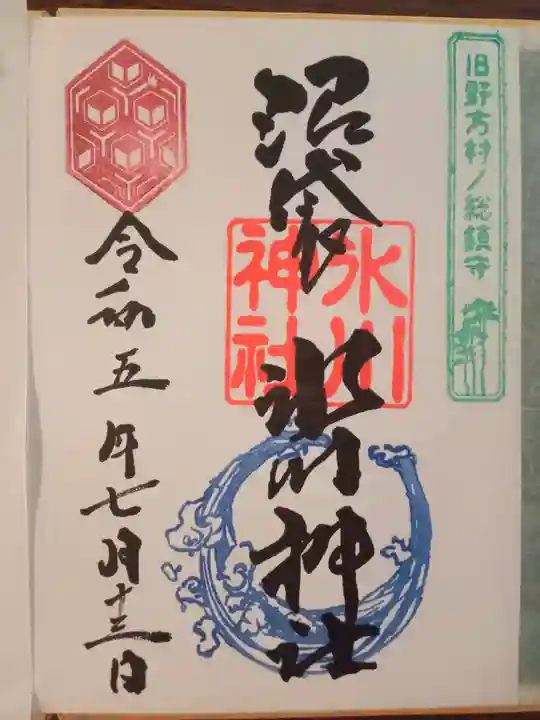 旧野方村ノ総鎮守
沼袋 氷川神社
氷川
神社
令和五年七月十三日